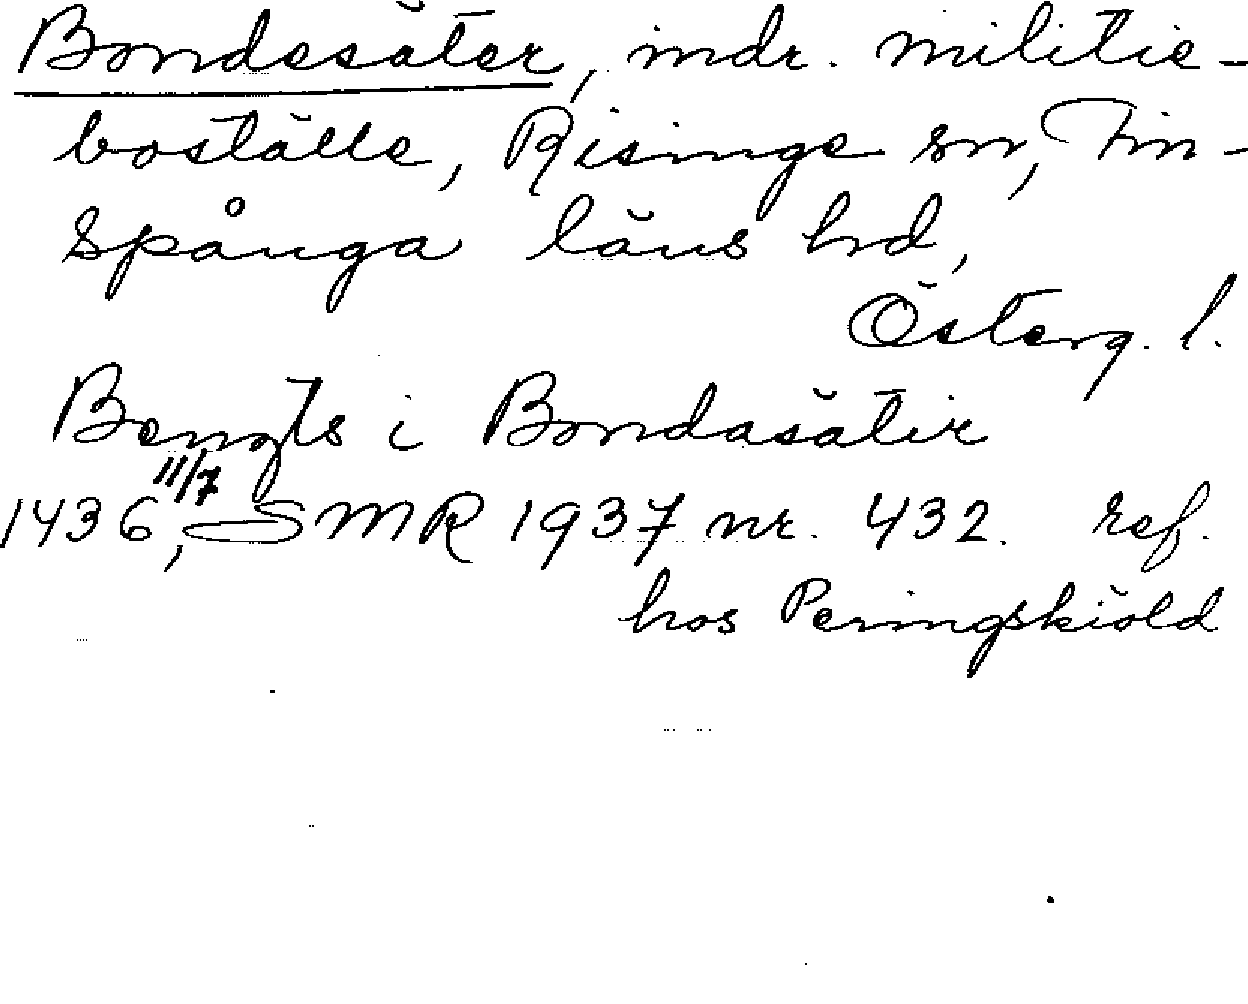 Bondesäter, indr. militie-
boställe, Risinge sn, Fin-
spånga läns hd,
Österg. l.
Bengts i Bondasätir
11/7
1436, SMR 1937 nr. 432. ref.
hos Peringskiöld